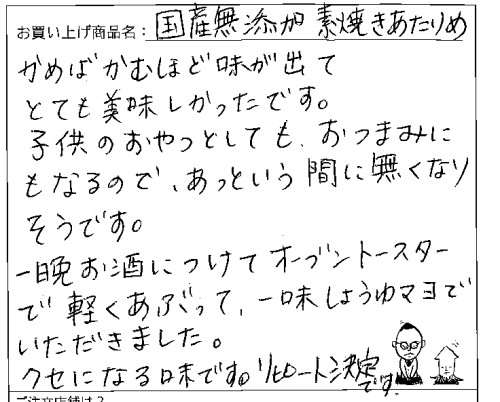 お買い上げ商品名： 国産無添加 素焼きあたりめ
かめばかむほど味が出て
とても美味しかったです。
子供のおやつとしても、おつまみに
もなるので、あっという間に無くなり
そうです。
一晩お酒につけてオーブントースター
で軽くあぶって、一味しょうゆマヨで
いただきました。
クセになる味です。リピート決定
です
ご注文店舗は？